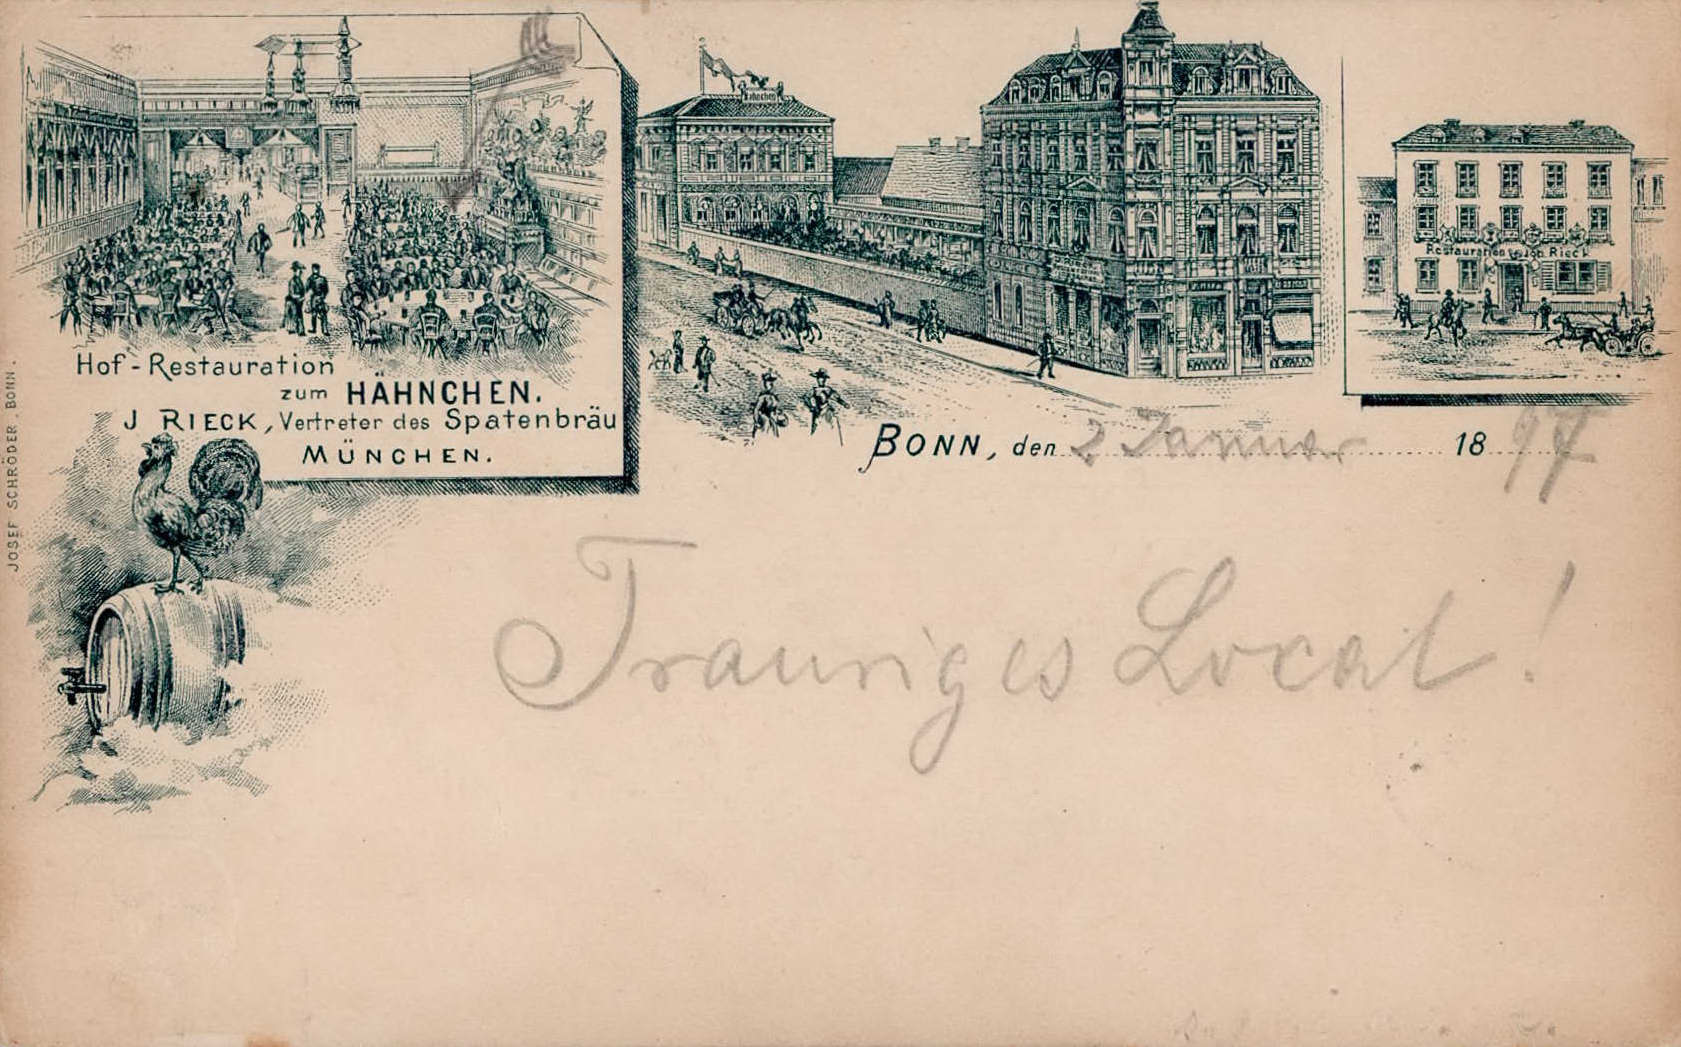 Hof-Restauration
zum HÄHNCHEN.
J RIECK, Vertreter des Spatenbräu
MÜNCHEN.
Hähnchen
Restauration Joh. Rieck
BONN, den 2 Januar 1897
Trauriges Local!
JOSEF SCHRÖDER, BONN.